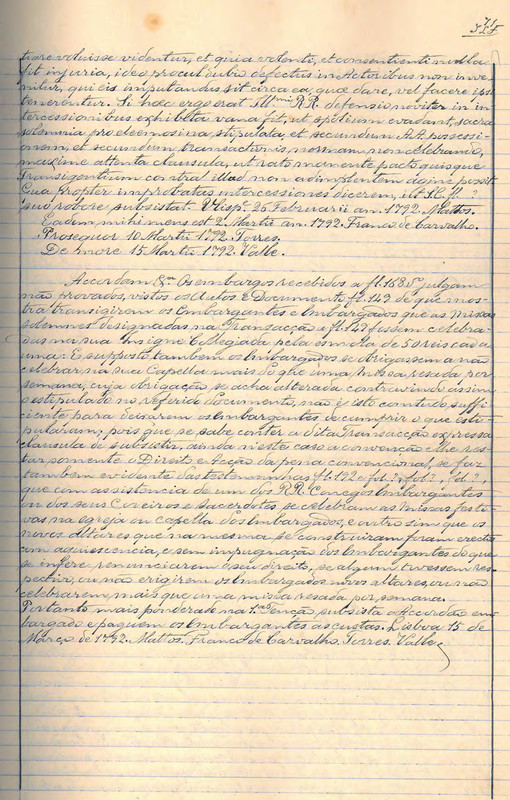 tiare voluisse videntur, et quia volenti, et consentienti nulla
fit injuria, ideo procul dubio defectus in Actoribus non inve-
nitur, qui eis imputandus sit circa ea, quae dare, vel facere ipsi
tenerentur. Si haec ergo erat Ill.mi RR. defensio novitor in in
tercessionibus exhibita vana fit, ut spolium evadant, sacra
solemnia pro eleemosina stipulata et secundum AA. possessi-
onem, et secundum transactionis, normam non celebrando,
maxime attenta clausula, ut rato manente pacto quisque
transigentium contra illud non adimplentem agere possit
Qua propter improbatas intercessiones dicerem, ut S. C. 
suo robore subsistat. Olisip.e 25 Februarii an. 1792. Mattos.
Eadem mihi mens est. 2. Martii an. 1792. Franco de Carvalho.
Prosequor 10 Martii 1792. Torres.
De more 15 Martii 1792. Valle.
Accordam &.a Os embargos recebidos a fl. 168 julgam
não provados, vistos os Autos e Documento fl. 149 de que mos-
tra transigirem os Embargantes e Embargados que as Missas
solemnes designadas na Transacção a fl. 149 fossem celebra-
das na sua insigne Collegiada pela esmola de 50 reis cada
uma: E supposto tambem os Embargados se obrigassem a não
celebrar na sua Capella mais do que uma Missa resada por
semana, cuja obrigação se acha alterada contravindo assim
o estipulado no referido documento, não é isto comtudo, suffi-
ciente para deixarem os Embargantes de cumprir o que esti-
pularam; pois que se sabe conter a dita Transacção expressa
clausula de subsistir, ainda neste caso a convenção e lhe res-
tar somente o Direito e Acção da pena convencional, se faz
tambem evidente das testemunhas fl. 192 e fol. ?, fol. ?, fol. ?
que com assistencia de um dos RR. Conegos Embargantes
ou dos seus Coreiros e Sacerdotes se celebriam as Missas festi-
vas na egreja ou capella dos Embargados, e outro sim que os
novos altares que na mesma se construiram foram erectos
com acquiescencia, e sem impugnação dos Embargantes do que
se infere renunciarem o seu direito, se algum tivessem res-
pectivo, ou não erigirem os Embargados novos altares, ou não
celebrarem mais que uma missa resada por semana.
Portanto mais ponderado na 1.a Tenção subsista o Accordão em-
bargado e paguem os Embargantes as custas. Lisboa 15 de
Março de 1792. Mattos. Franco de Carvalho. Torres. Valle